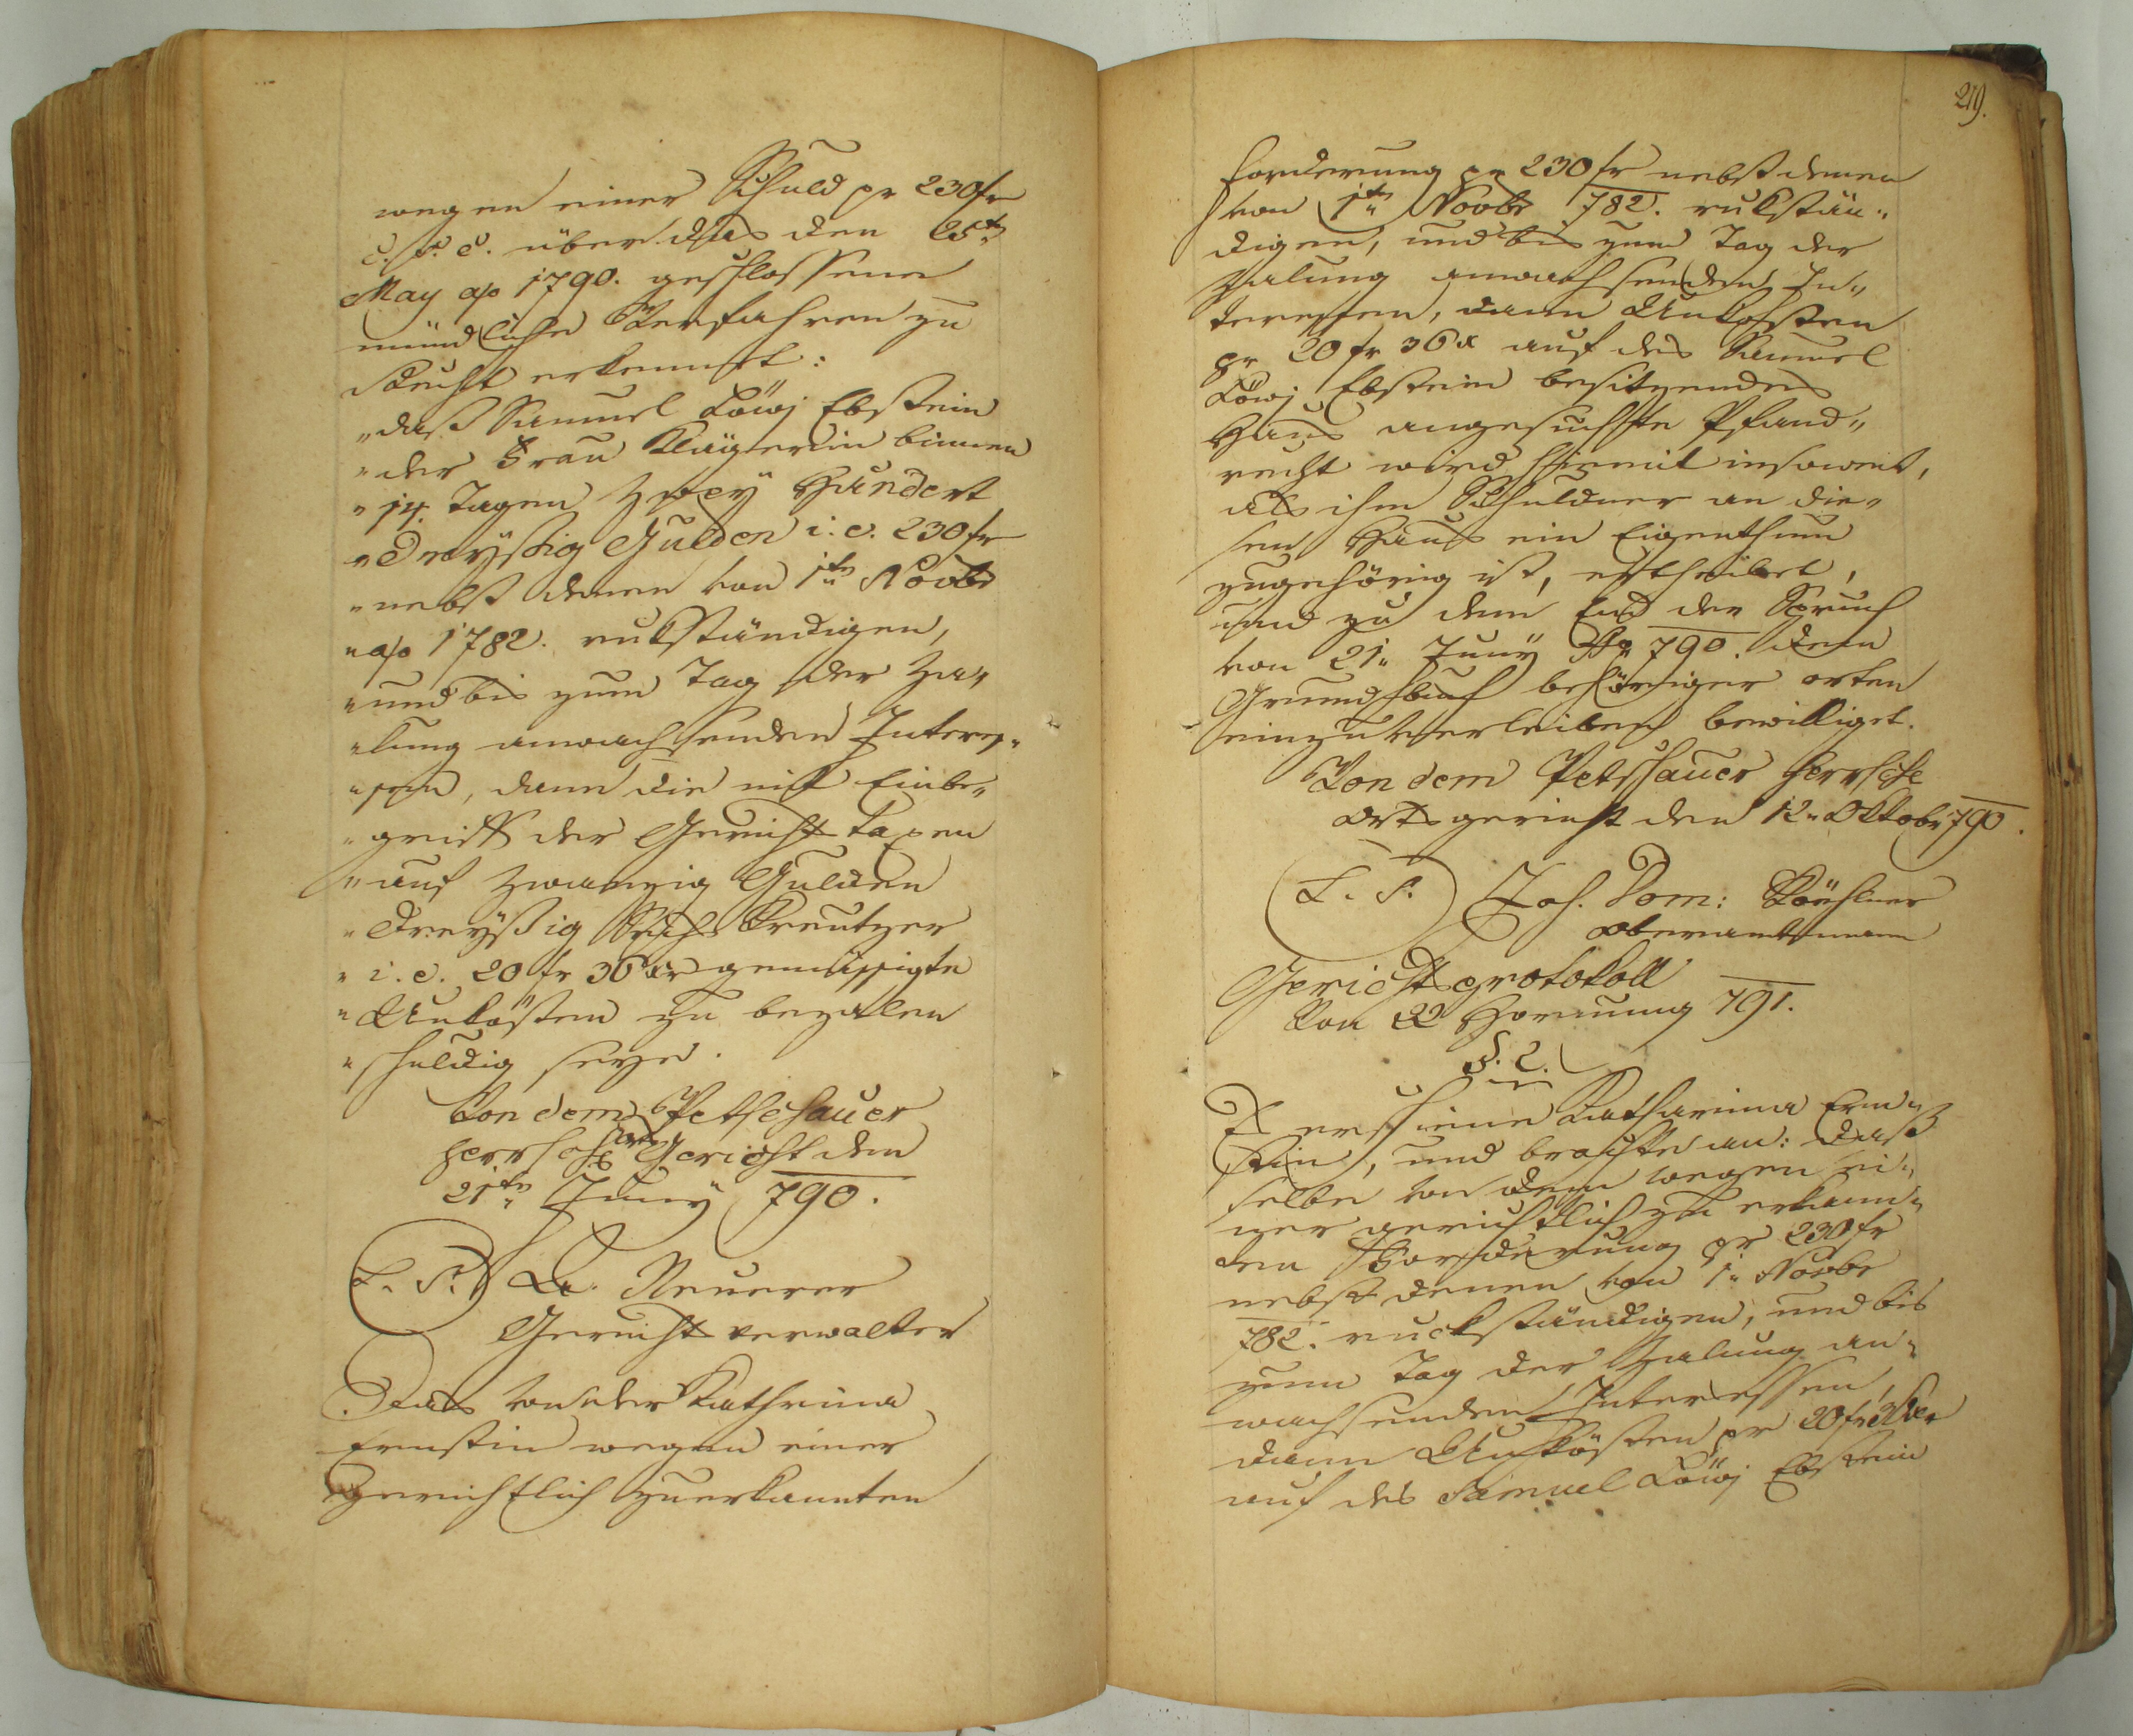 wegen einer Schuld pr 230 fr
c. s. c. über das den 25tn
May ao 1790. geschlossene
mündliche Verfahren zu
Recht erkennet:
"daß Samuel Löwj Ebstein
"der Frau Klägerin binnen
"14. Tagen Zweÿ Hundert
"Dreÿßig Gulden i. e. 230 fr
"nebst denen von 1tn Novbr
"ao 1782. rukständigen,
"und bis zum Tag der Za"
"lung anwachsenden Interes"
"sen, dann die mit Einbe"
"griff der Gerichts taxen
"auf Zwanzig Gulden
"Dreÿßig Sechs Kreutzer
"i. e. 20 fr 36 xr gemässigte
"Unkösten zu bezallen
"schuldig seÿe.
Von dem Petschauer
herrsch. orts Gericht den
21tn Junÿ 790.
L. S. Neuerer
Gerichtsverwalter
Das von der Kathrina
Ernstin wegen einer
gerichtlich zuerkannten
219.
Forderung pr 230 fr nebst denen
von 1tn Novbr 782. rukstän"
digen, und bis zum Tag der
Zalung anwachsenden In"
teressen, dann Unkosten
pr 20 fr 36 x auf des Samuel
Löwj Ebstein besitzendes
Haus angesuchte Pfand"
recht wird hiemit insoweit,
als ihm Schuldner an die"
sem Haus ein Eigenthum
zugehörig ist, ertheilet,
und zu dem End der Spruch
von 21" Junÿ ao 790. dem
Grundbuch behöriger orten
einzuverleiben bewilliget.
Von dem Petschauer herrsch
Ortsgericht den 12" Oktobr 790.
L. S. Joh. Dom:
Oberamtmann
Gerichtsprotokoll
Von 22 Hornung 791.
§. 2.
Es erschiene Katharina Ern"
stin, und brachte an: daß
selbe von dem wegen ei"
ner gerichtlich zu erkann"
ten Forderung pr 230 fr
nebst denen von 1" Novbr
782. ruckständigen, und bis
zum Tag der Zalung an"
wachsenden Interessen,
dann Unkösten pr 20 fr 36 xr
auf des Samuel Löwj Ebstein